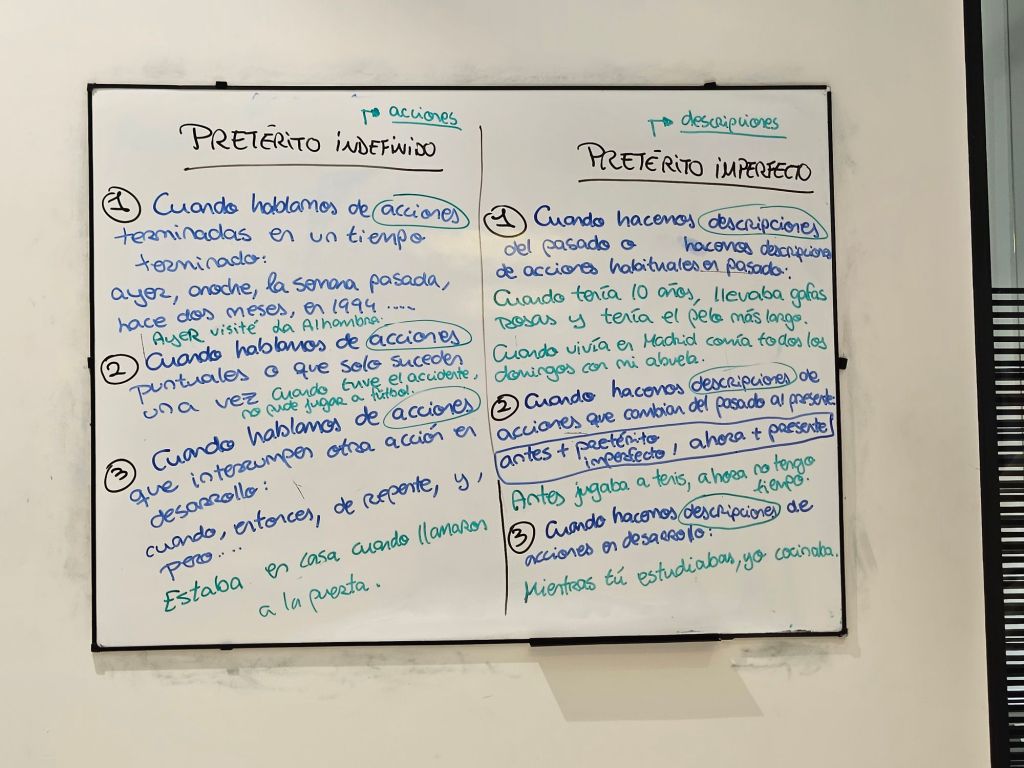 ↱ acciones
PRETÉRITO INDEFINIDO
① Cuando hablamos de acciones
terminadas en un tiempo
terminado:
ayer, anoche, la semana pasada,
hace dos meses, en 1994 .....
Ayer visité la Alhambra.
② Cuando hablamos de acciones
puntuales o que solo suceden
una vez Cuando tuve el accidente,
no pude jugar a fútbol.
③ Cuando hablamos de acciones
que interrumpen otra acción en
desarrollo:
cuando, entonces, de repente, y,
pero....
Estaba en casa cuando llamaron
a la puerta.
↱ descripciones
PRETÉRITO IMPERFECTO
① Cuando hacemos descripciones
del pasado o hacemos descripciones
de acciones habituales en pasado:
Cuando tenía 10 años, llevaba gafas
rosas y tenía el pelo más largo.
Cuando vivía en Madrid comía todos los
domingos con mi abuela.
② Cuando hacemos descripciones de
acciones que cambian del pasado al presente
antes + pretérito
imperfecto, ahora + presente
Antes jugaba a tenis, ahora no tengo
tiempo.
③ Cuando hacemos descripciones de
acciones en desarrollo:
Mientras tú estudiabas, yo cocinaba.